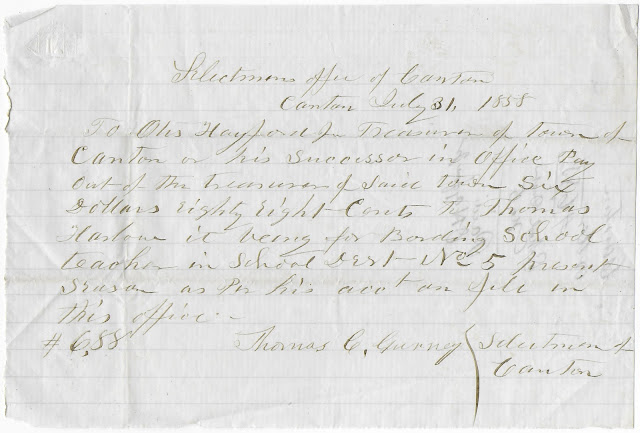 Selectmens offic of Canton
Canton July 31, 1858
To Otis Hayford Jr Treasurer of town of
Canton or his Successor in Office Pay
out of the treasurer of Said town Six
Dollars Eighty Eight Cents to Thomas
Harlow it being for Bording School
teacher in School Dist No 5 present
Season as Per his acct on file in
this office -
# 6,88 Thomas C. Gurney Selectmen of
Canton